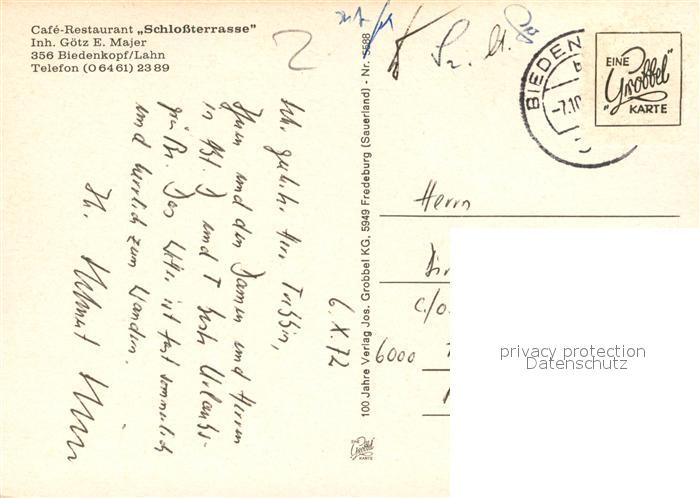 Café-Restaurant „Schloßterrasse"
Inh. Götz E. Majer
356 Biedenkopf/Lahn
Telefon (0 64 61) 23 89
Sehr geehrter Herr
Ihnen und den Damen und Herren
in Abt. J und T beste Urlaubs-
grüße. Das Wetter ist fast sommerlich
und herrlich zum Wandern.
Ihr Helmut
6. X. 72
100 Jahre Verlag Jos. Grobbel KG, 5949 Fredeburg (Sauerland) - Nr. 5588
EINE
"Grobbel"
KARTE
BIEDEN
-7.10
EINE
"Grobbel"
KARTE
Herrn
c/o
6000
privacy protection
Datenschutz